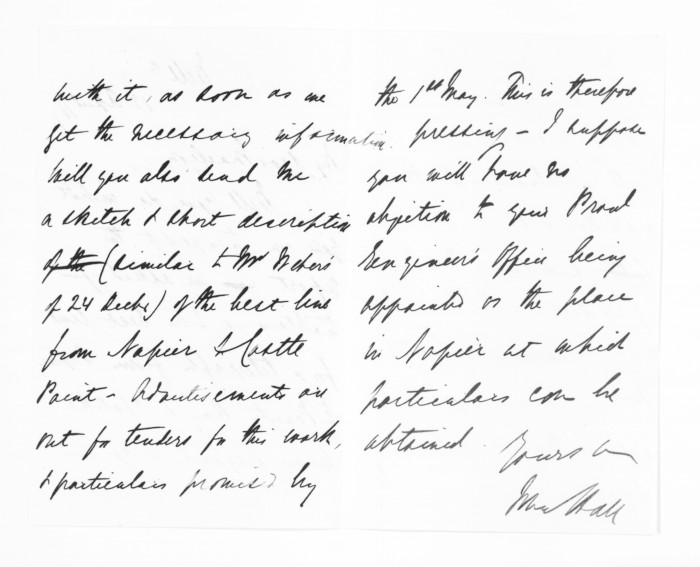 with it, as soon as we
get the necessary information.
Will you also send me
a sketch & short description
of the (similar to Mr Weber's
of 24 Decbr) of the best line
from Napier to Castle
Point - Advertisements are
out for tenders for this work,
& particulars promised by
the 1st May. This is therefore
pressing - I suppose
you will have no
objection to your Provl
Engineer's Office being
appointed as the place
in Napier at which
particulars can be
obtained.
Yours
Hall